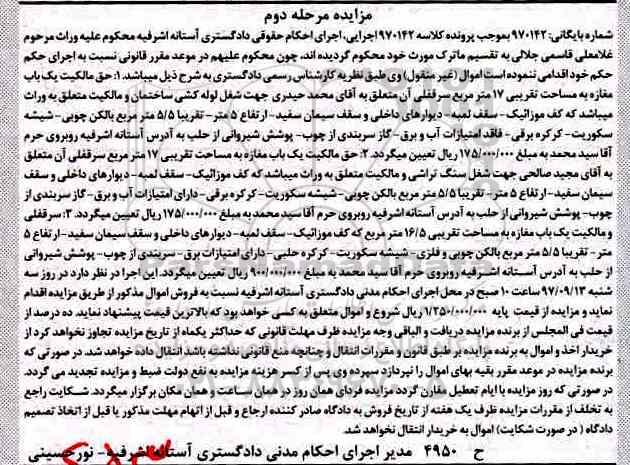 مزایده مرحله دوم
شماره بایگانی: ۹۷۰۱۴۲ بموجب پرونده کلاسه ۹۷۰۱۴۲ اجرایی، اجرای احکام حقوقی دادگستری آستانه اشرفیه محکوم علیه وراث مرحوم
غلامعلی قاسمی جلالی به تقسیم ماترک مورث خود محکوم گردیده اند، چون محکوم علیهم در موعد مقرر قانونی نسبت به اجرای حکم
حکم خود اقدامی ننموده است اموال (غیر منقول) وی طبق نظریه کارشناس رسمی دادگستری به شرح ذیل میباشد. ۱: حق مالکیت یک باب
مغازه به مساحت تقریبی ۱۷ متر مربع سرقفلی آن متعلق به آقای محمد حیدری جهت شغل لوله کشی ساختمان و مالکیت متعلق به وراث
میباشد که کف موزائیک- سقف لمبه- دیوارهای داخلی و سقف سیمان سفید- ارتفاع ۵ متر- تقریبا ۵/۵ متر مربع بالکن چوبی- شیشه
سکوریت- کرکره برقی- فاقد امتیازات آب و برق- گاز سربندی از چوب- پوشش شیروانی از حلب به آدرس آستانه اشرفیه روبروی حرم
آقا سید محمد به مبلغ ۱۷۵/۰۰۰/۰۰۰ ریال تعیین میگردد. ۲: حق مالکیت یک باب مغازه به مساحت تقریبی ۱۷ متر مربع سرقفلی آن متعلق
به آقای مجید صالحی جهت شغل سنگ تراشی و مالکیت متعلق به وراث میباشد که کف موزائیک- سقف لمبه- دیوارهای داخلی و سقف
سیمان سفید- ارتفاع ۵ متر- تقریبا ۵/۵ متر مربع بالکن چوبی- شیشه سکوریت- کرکره برقی- دارای امتیازات آب و برق- گاز سربندی از
چوب- پوشش شیروانی از حلب به آدرس آستانه اشرفیه روبروی حرم آقا سید محمد به مبلغ ۱۷۵/۰۰۰/۰۰۰ ریال تعیین میگردد. ۳: سرقفلی
و مالکیت یک باب مغازه به مساحت تقریبی ۱۶/۵ متر مربع که کف موزائیک- سقف لمبه- دیوارهای داخلی و سقف سیمان سفید- ارتفاع ۵
متر- تقریبا ۵/۵ متر مربع بالکن چوبی و فلزی- شیشه سکوریت- کرکره حلبی- دارای امتیازات برق- سربندی از چوب- پوشش شیروانی
از حلب به آدرس آستانه اشرفیه روبروی حرم آقا سید محمد به مبلغ ۹۰۰/۰۰۰/۰۰۰ ریال تعیین میگردد. این اجرا در نظر دارد در روز سه
شنبه ۹۷/۰۹/۱۳ ساعت ۱۰ صبح در محل اجرای احکام مدنی دادگستری آستانه اشرفیه نسبت به فروش اموال مذکور از طریق مزایده اقدام
نماید و مزایده از قیمت پایه ۱/۲۵۰/۰۰۰/۰۰۰ ریال شروع و اموال متعلق به کسی خواهد بود که بالاترین قیمت پیشنهاد نماید. ده درصد از
قیمت فی المجلس از برنده مزایده دریافت و الباقی وجه مزایده ظرف مهلت قانونی که حداکثر یکماه از تاریخ مزایده تجاوز نخواهد کرد از
خریدار اخذ و اموال به برنده مزایده بر طبق قانون و مقررات انتقال و چنانچه منع قانونی نداشته باشد انتقال داده خواهد شد. در صورتی که
برنده مزایده در موعد مقرر بقیه بهای اموال را نپردازد سپرده وی پس از کسر هزینه مزایده به نفع دولت ضبط و مزایده تجدید می گردد.
در صورتی که روز مزایده با ایام تعطیل مقارن گردد مزایده فردای همان روز در همان ساعت و همان مکان برگزار میگردد. شکایت راجع
به تخلف از مقررات مزایده ظرف یک هفته از تاریخ فروش به دادگاه صادر کننده ارجاع و قبل از اتمام مهلت مذکور یا قبل از اتخاذ تصمیم
دادگاه ( در صورت شکایت) اموال به خریدار انتقال نخواهد شد.
ح ۴۹۵۰ مدیر اجرای احکام مدنی دادگستری آستانه اشرفیه- نورحسینی